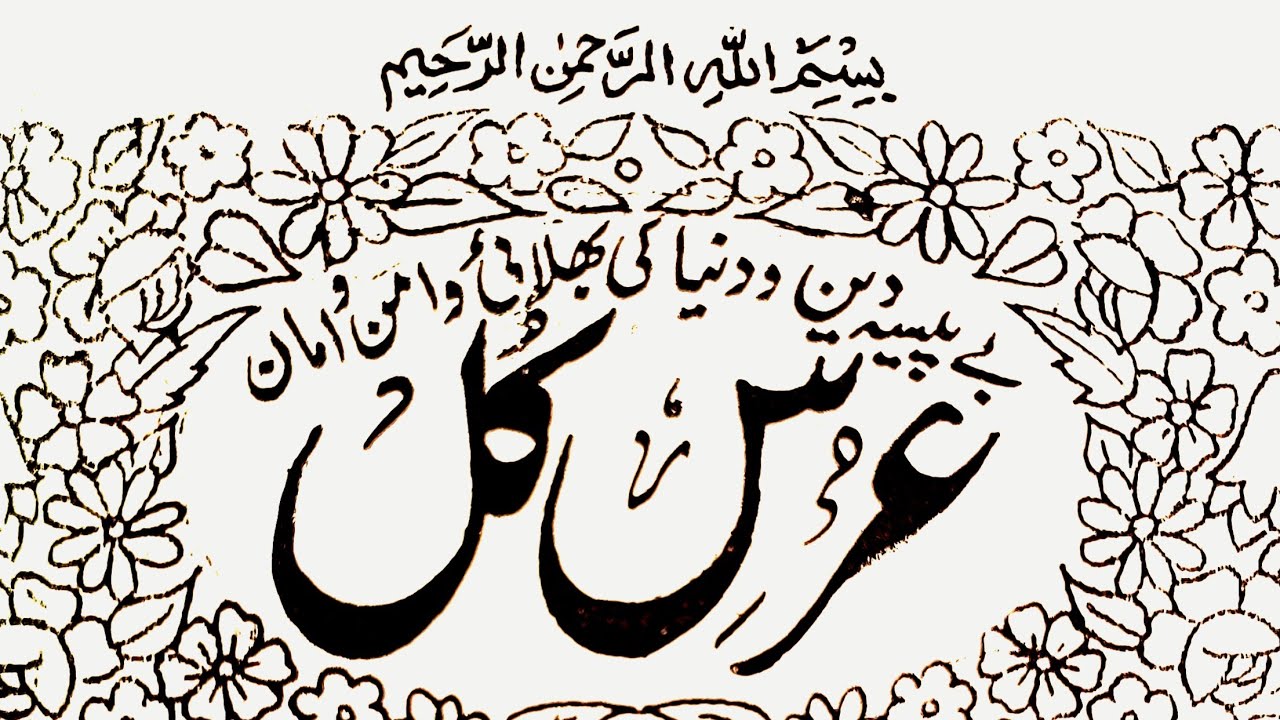 بِسْمِ اللّٰهِ الرَّحْمٰنِ الرَّحِيْمِ
بے پیسہ دین و دنیا کی بھلائی و امن و امان
عرسِ کُل